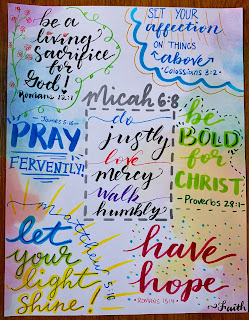 be a
living
Sacrifice
for
God!
Romans 12:1
SET YOUR
affection
ON THINGS
above
Colossians 3:2
Micah 6:8
do
justly
love
mercy
walk
humbly
James 5:16
PRAY
FERVENTLY!
be
BOLD
for
CHRIST
Proverbs 28:1
let
your
light
Shine!
Matthew 5:16
have
hope
Romans 15:4
Faith